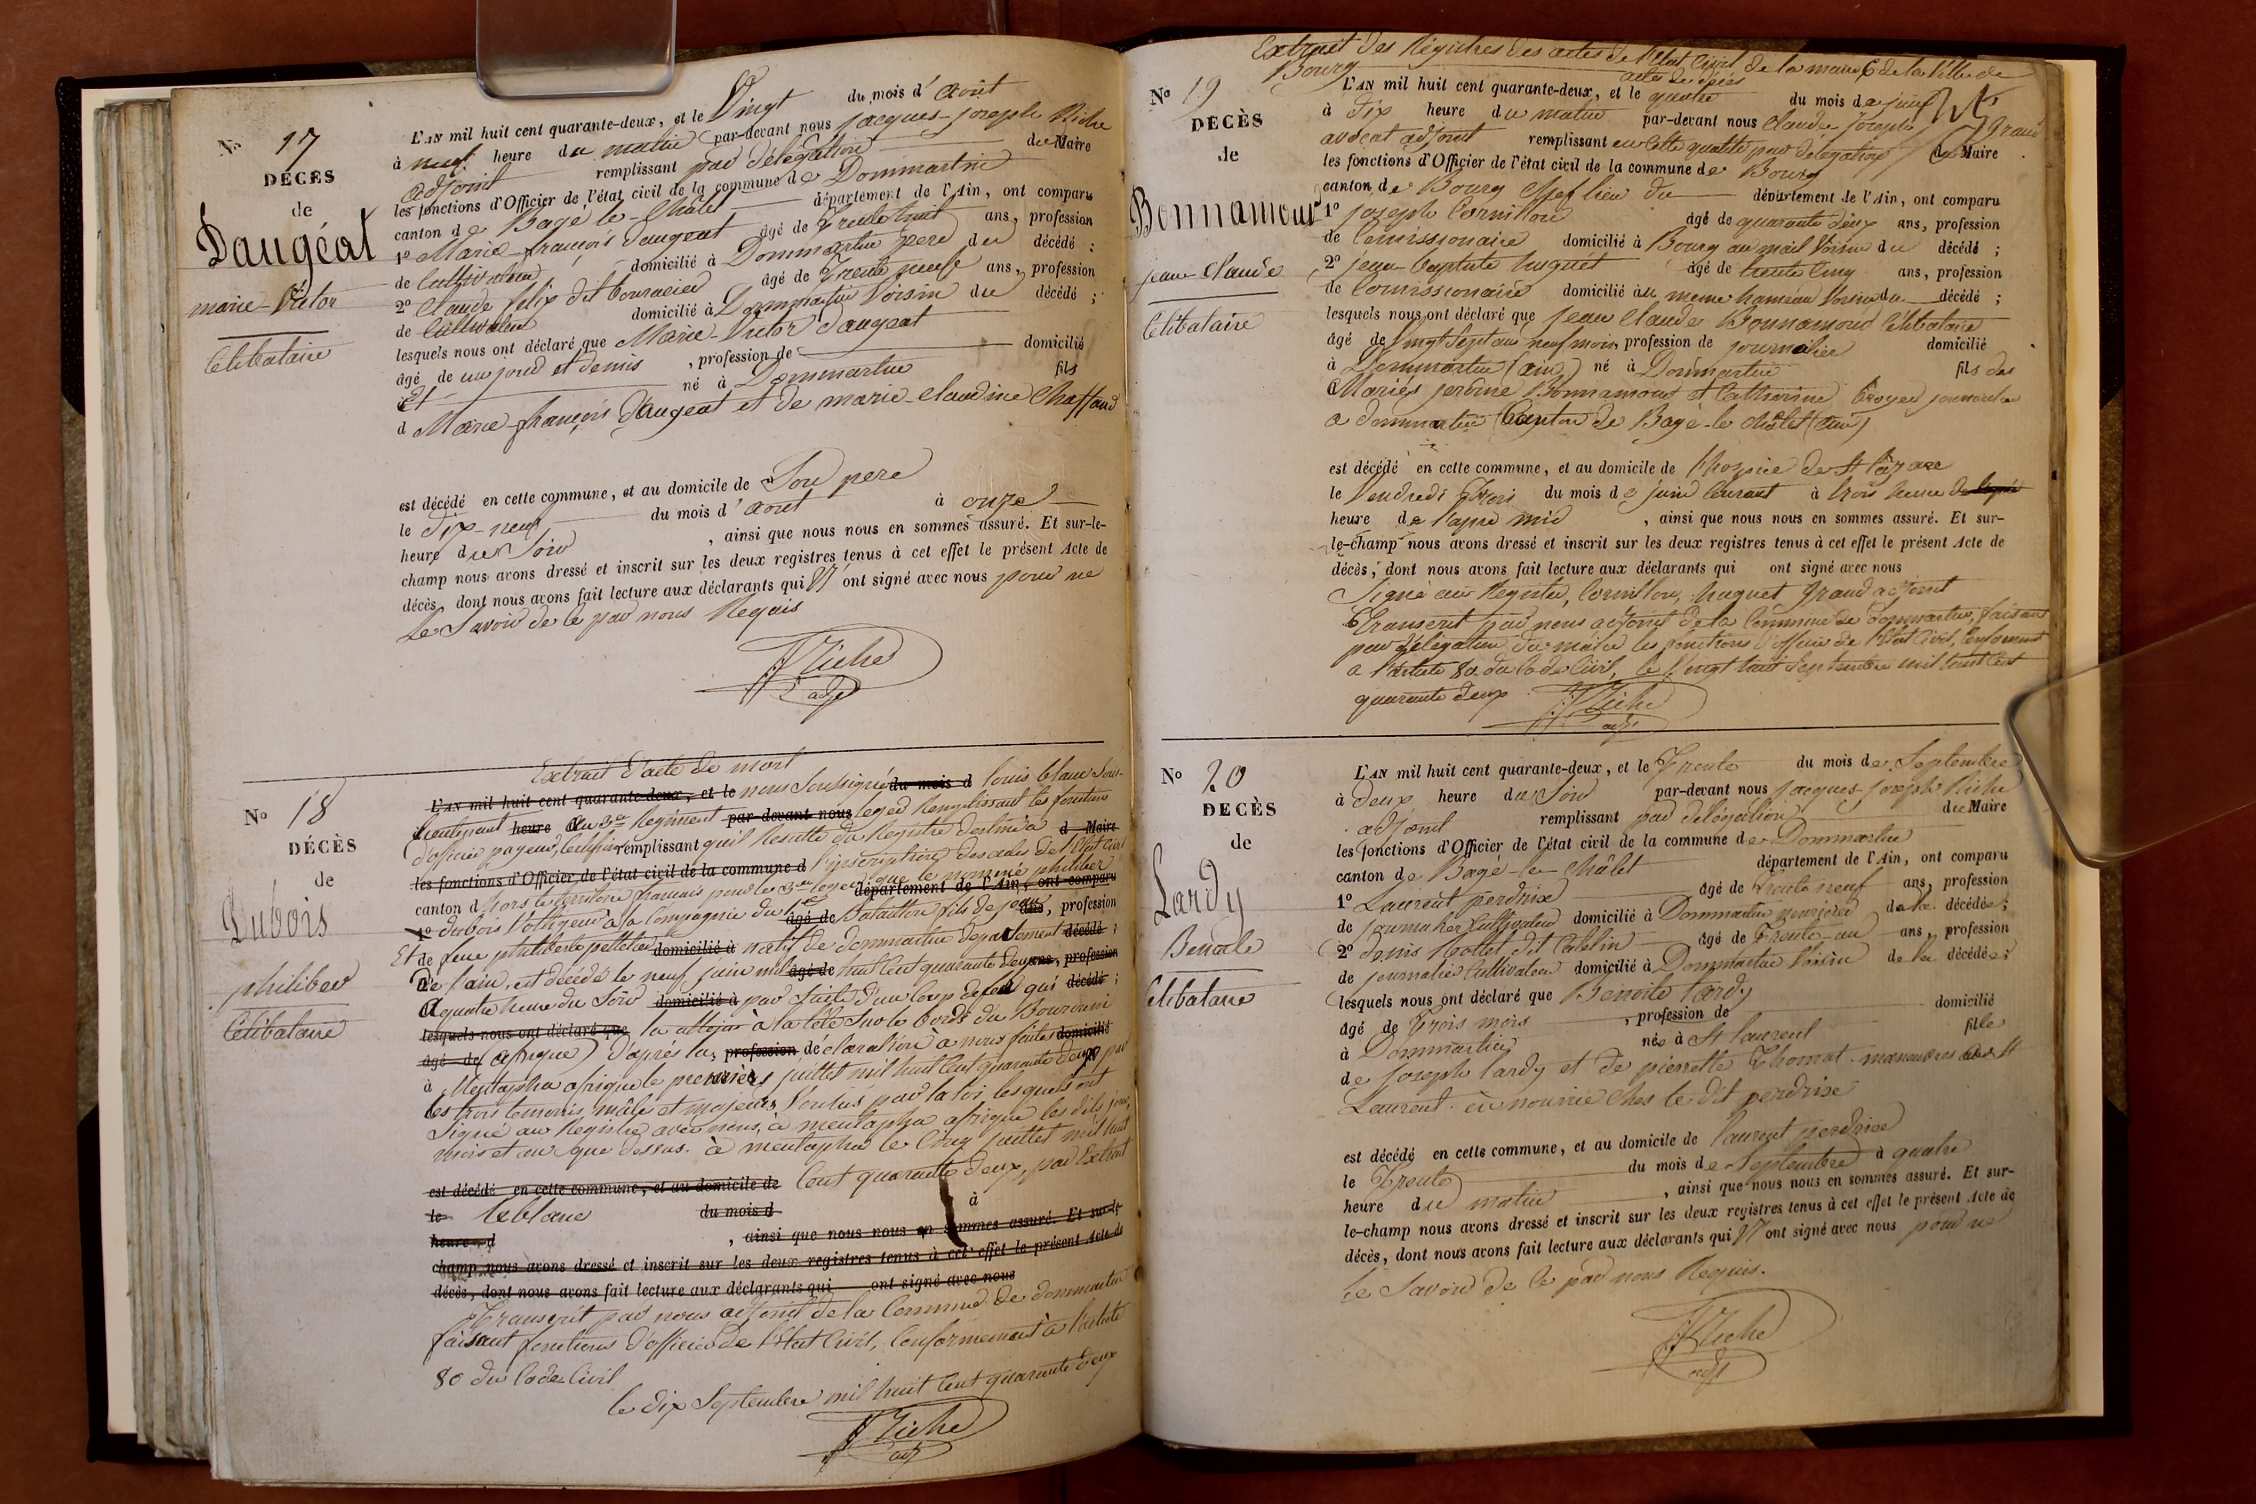 No 17
DÉCÈS
de
Daugéat
marie-Victor
Celibataire
L'AN mil huit cent quarante-deux, et le Vingt du mois d'août
à neuf heure du matin par-devant nous jacques-joseph Riche
adjoint remplissant par délégation du Maire
les fonctions d'Officier de l'état civil de la commune de Dommartin
canton de Bagé-le-Châtel département de l'Ain, ont comparu
1º Marie-françois daugeat âgé de Trente huit ans, profession
de Cultivateur domicilié à Dommartin pere du décédé ;
2º Claude felix dit bouracier âgé de Trente neuf ans, profession
de Cultivateur domicilié à Dommartin Voisin du décédé ;
lesquels nous ont déclaré que Marie-Victor daugeat
âgé de un jour et demis , profession de domicilié
à né à Dommartin fils
d Marie-françois daugeat et de marie-claudine Chaffaud
est décédé en cette commune, et au domicile de Son pere
le dix-neuf du mois d'aout à onze
heure du Soir , ainsi que nous nous en sommes assuré. Et sur-le-
champ nous avons dressé et inscrit sur les deux registres tenus à cet effet le présent Acte de
décès, dont nous avons fait lecture aux déclarants qui n'ont signé avec nous pour ne
le Savoir de ce par nous Requis
JJ Riche
adjt
No 18
DÉCÈS
de
Dubois
philiber
Célibataire
Extrait d'acte de mort
L'AN mil huit cent quarante-deux, et le nous Soussigné du mois d louis leblanc Sous-
lieutenant heure du 3me Regiment par-devant nous leger Remplissant les fonctions
d'officier payeur, Certifie remplissant qu'il Resulte du Registre destiné à d Maire
les fonctions d'Officier de l'état civil de la commune d l'inscription des actes de l'Etat Civil
canton d hors le territoire francais pour le 3me leger que le nommé philiber
département de l'Ain, ont comparu
1º dubois Voltigeur à la Compagnie du 1er âgé de Bataillon fils de jean ans, profession
Et de feue philiberte pelletier domicilié à natif de dommartin departement décédé ;
De l'ain, est décédé le neuf juin mil âgé de huit Cent quarante deux ans, profession
A quatre heure du Soir domicilié à par Suite d'un Coup de feu qui décédé ;
lesquels nous ont déclaré que la atteint à la tête Sur le bords du
âgé de (afrique) d'après la profession déclaration a nous faite domicilié
à Mustapha afrique le premier juillet mil huit Cent quarante deux par
les trois temoins, mâle et majeurs Voulus par la loi, lesquels ont
Signé au Registre avec nous, à mustapha afrique les dits jour,
mois et an que dessus. à mustapha le Cinq juillet mil huit
est décédé en cette commune, et au domicile de Cent quarante deux, par Extrait
le leblanc du mois d à
heure d , ainsi que nous nous en sommes assuré. Et sur-le-
champ nous avons dressé et inscrit sur les deux registres tenus à cet effet le présent Acte de
décès, dont nous avons fait lecture aux déclarants qui ont signé avec nous
Transcrit par nous adjoint de la Commune de dommartin
faisant fonctions d'officier de l'Etat Civil, Conformement à l'article
80 du Code Civil
le dix Septembre mil huit Cent quarante deux
JJ Riche
adjt
Extrait des Régistres des actes de l'Etat Civil de la mairie de la Ville de
Bourg
actes de décès
No 19
DÉCÈS
de
Bonnamour
jean-Claude
Célibataire
L'AN mil huit cent quarante-deux, et le quatre du mois de juin
à dix heure du matin par-devant nous Claude Joseph
Grand
avocat adjoint remplissant en cette qualité par délégation du Maire
les fonctions d'Officier de l'état civil de la commune de Bourg
canton de Bourg Chef lieu du département de l'Ain, ont comparu
1º joseph Cornillon âgé de quarante deux ans, profession
de Comissionaire domicilié à Bourg au mail Voisin du décédé ;
2º jean-baptiste huguet âgé de trente Cinq ans, profession
de Comissionaire domicilié au meme hameau Voisin du décédé ;
lesquels nous ont déclaré que jean Claude Bonnamour Célibataire
âgé de Vingt Sept ans neuf mois, profession de journalier domicilié
à Dommartin (ain) né à Dommartin fils des
Mariés jerôme Bonnamour et Catherine Broyer journalier
a dommartin Canton de Bagé-le châtel (ain)
est décédé en cette commune, et au domicile de l'hospice de St lazare
le Vendredi Trois du mois de juin Courant à trois heure
heure de l'apré mid , ainsi que nous nous en sommes assuré. Et sur-
le-champ nous avons dressé et inscrit sur les deux registres tenus à cet effet le présent Acte de
décès, dont nous avons fait lecture aux déclarants qui ont signé avec nous
Signé aux Registre, Cornillon, huguet Grand adjoint
Transcrit par nous adjoint de la Commune de dommartin, faisant
par délégation du maire les fonctions d'officier de l'Etat Civil, Conformement
a l'article 80 du Code Civil, le Vingt huit Septembre mil huit Cent
quarante deux
JJ Riche
adjt
No 20
DÉCÈS
de
Lardy
Benoite
Célibataire
L'AN mil huit cent quarante-deux, et le Trente du mois de Septembre
à deux heure du Soir par-devant nous jacques-joseph Riche
adjoint remplissant par délégation du Maire
les fonctions d'Officier de l'état civil de la commune de Dommartin
canton de Bagé-le-Châtel département de l'Ain, ont comparu
1º Laurent perdrix âgé de Trente neuf ans, profession
de journalier Cultivateur domicilié à Dommartin nourricier de la décédée ;
2º denis Cottet dit Catelin âgé de Trente-un ans, profession
de journalier Cultivateur domicilié à Dommartin Voisin de la décédée ;
lesquels nous ont déclaré que Benoite lardy
âgé de Trois mois , profession de domicilié
à Dommartin née à St laurent fille
de joseph lardy et de pierrette Thomat manœuvres à St
Laurent. en nourrice Chez le dit perdrix
est décédé en cette commune, et au domicile de laurent perdrix
le Trente du mois de Septembre à quatre
heure du matin , ainsi que nous nous en sommes assuré. Et sur-
le-champ nous avons dressé et inscrit sur les deux registres tenus à cet effet le présent Acte de
décès, dont nous avons fait lecture aux déclarants qui n'ont signé avec nous pour ne
le Savoir de ce par nous Requis.
JJ Riche
adjt